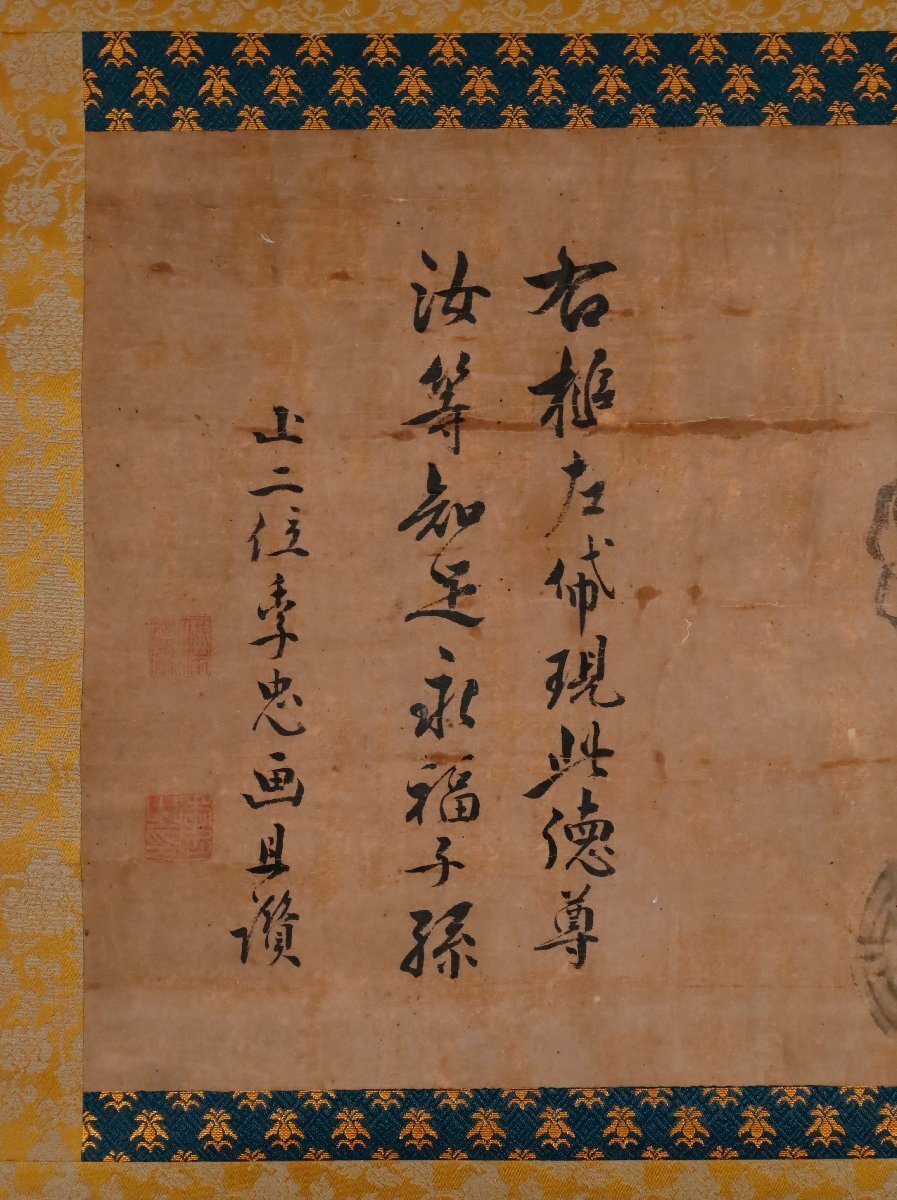 右槌左帒現此徳尊
汝等知足永福子孫
正二位季忠画且讃